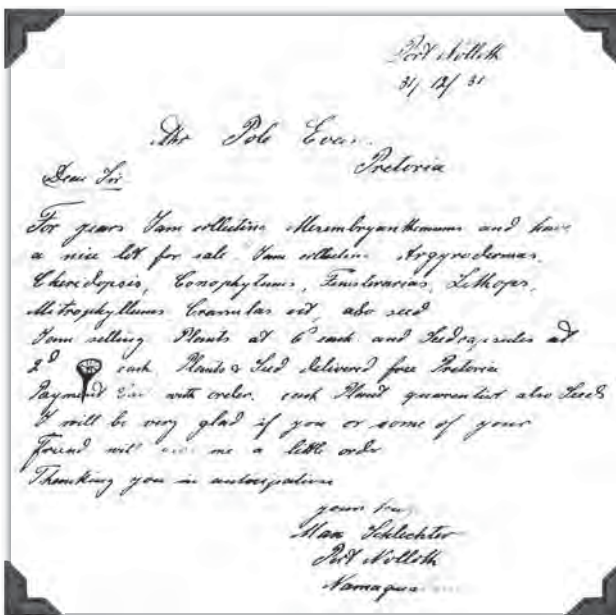 Port Nolloth
31/12/31
Mr Pole Evans
Pretoria
Dear Sir
For years I am collecting Mesembryanthemums and have
a nice lot for sale. I am collecting Argyrodermas,
Cheridopsis, Conophytums, Fenisterarias, Lithops,
Mitrophyllums Crassulas ect, also seed
I am selling Plants at 6d each and Seedcapsules at
2d each. Plants & Seed delivered free Pretoria
Payment with order. each Plant guarentiet also Seeds
I will be very glad if you or some of your
Friend will me a little order
Thanking you in anticipation
yours
Max Schlechter
Port Nolloth